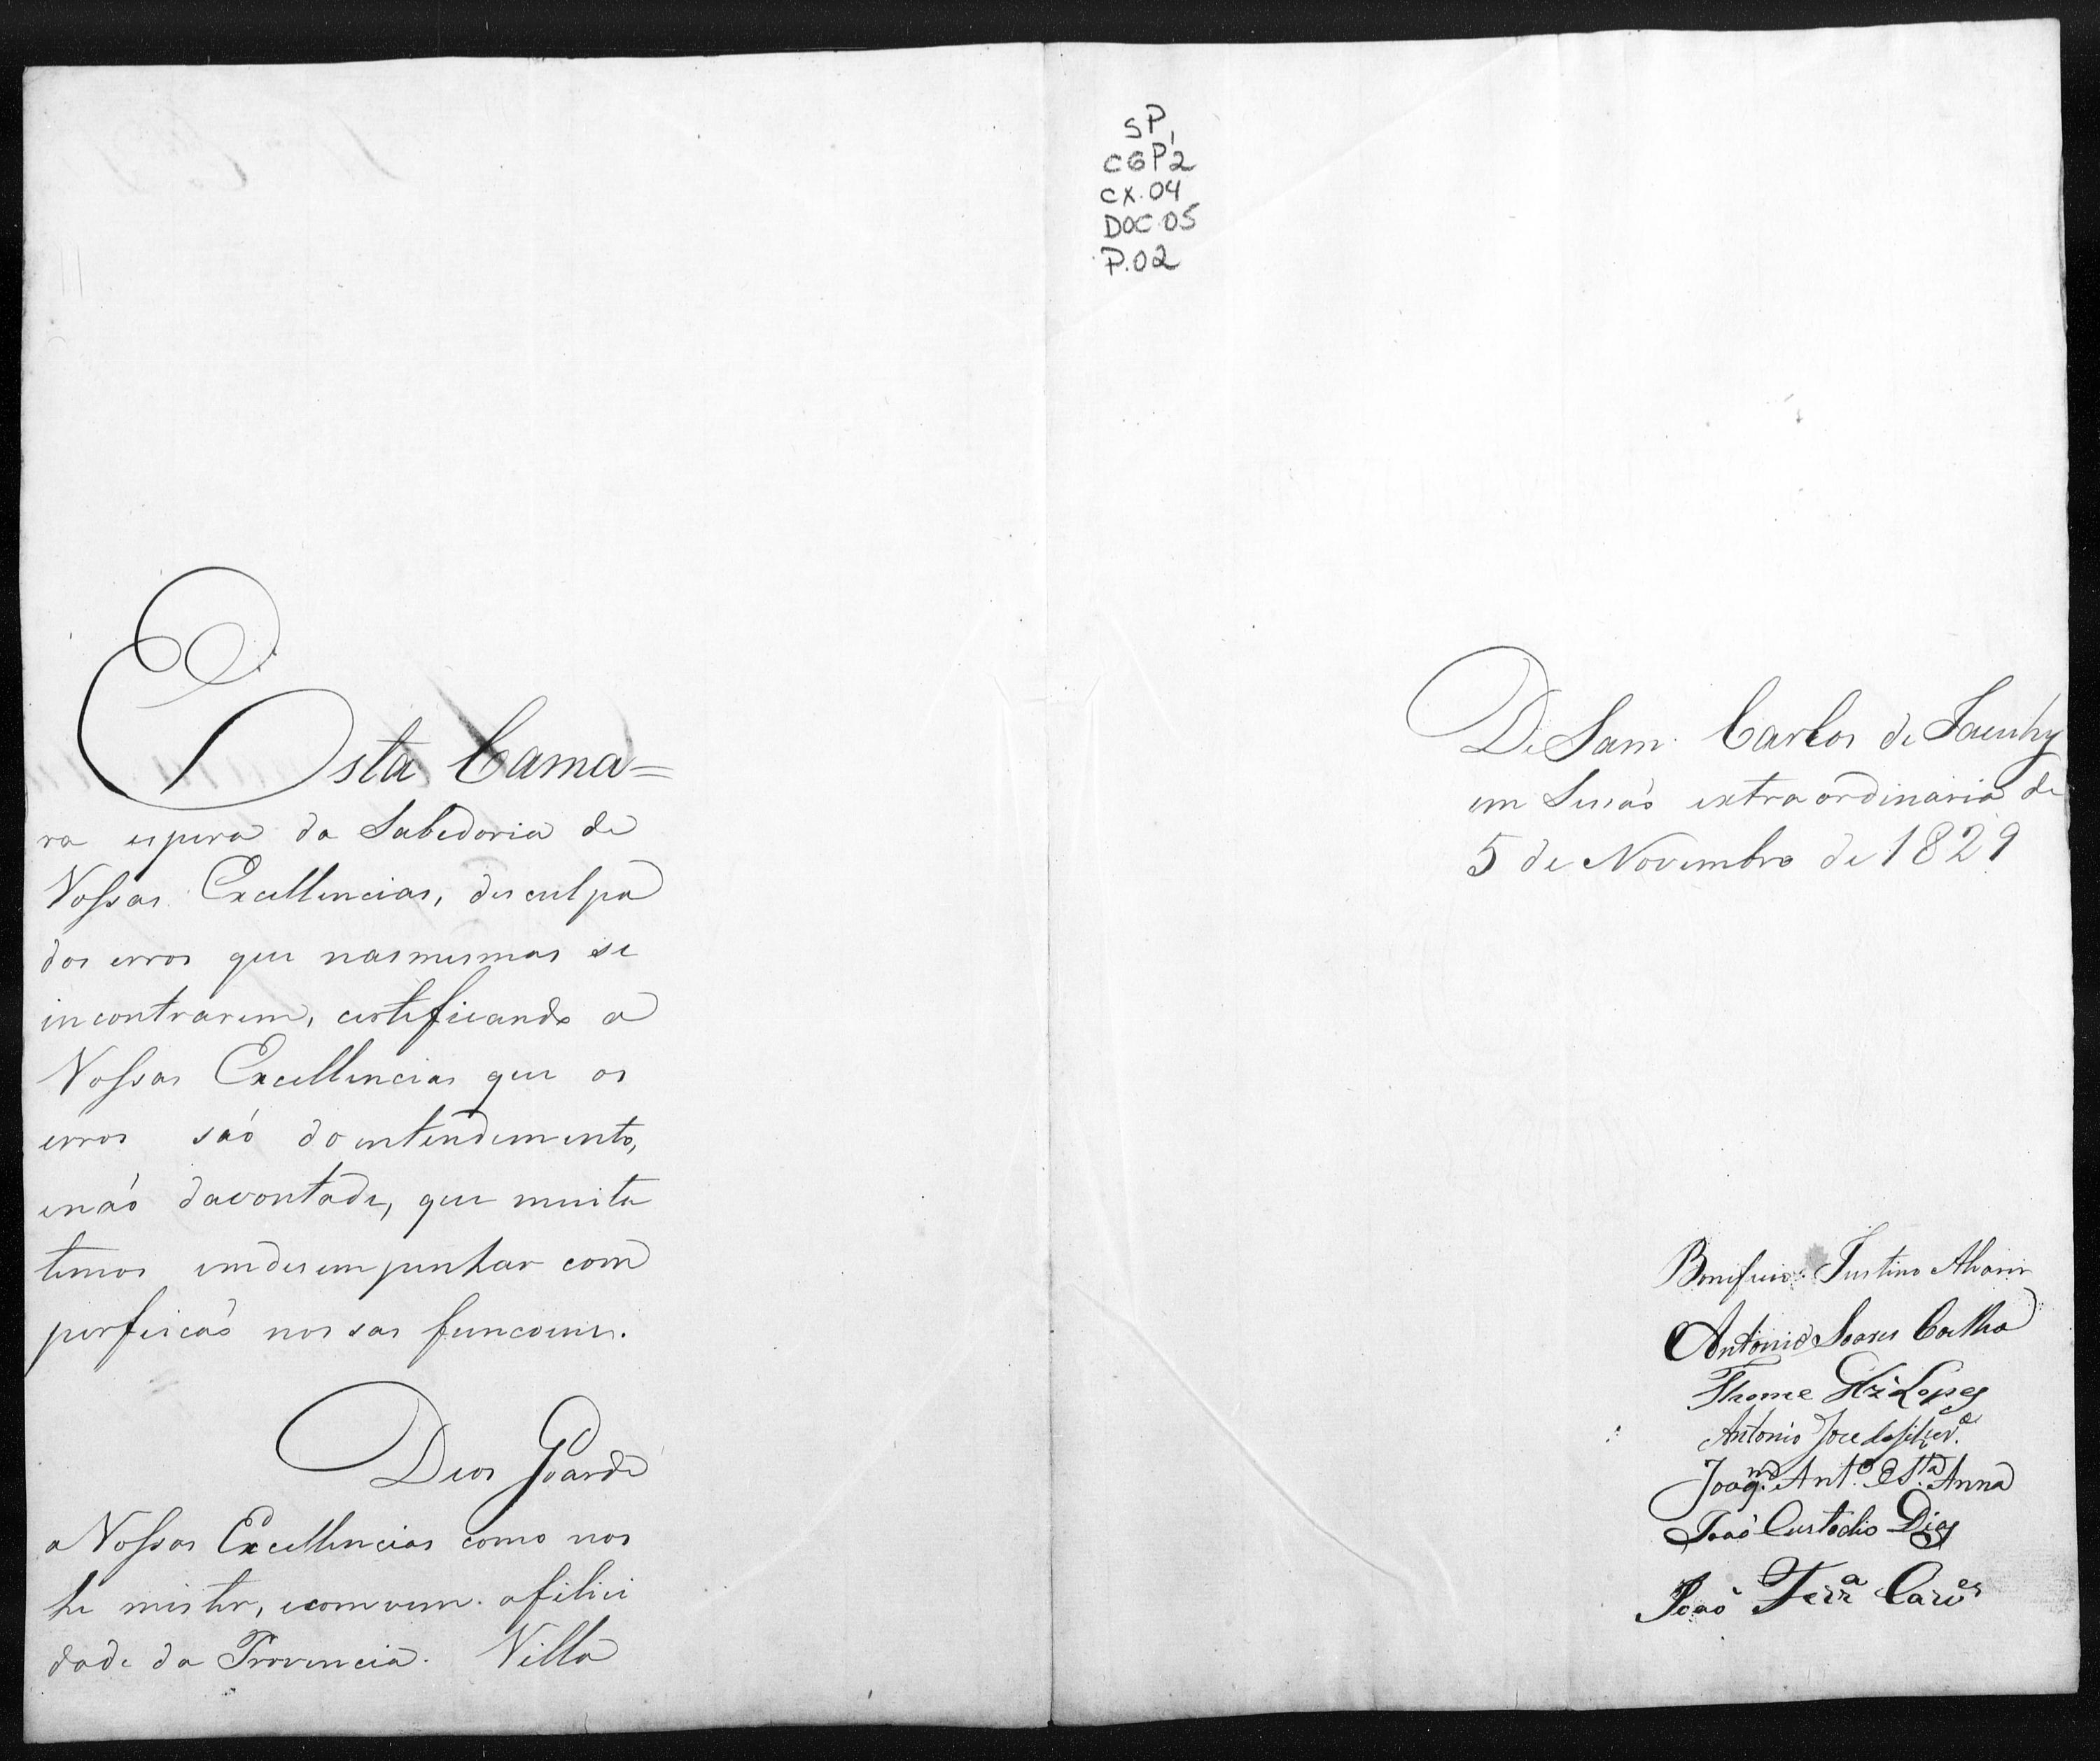 Esta Cama=
ra espera da Sabedoria de
Vossas Excellencias, desculpa
dos erros que nasmesmas se
incontrarem, certeficando a
Vossas Excellencias que os
erros saó do entendemento,
enaó davontade, que muita
temos emdesempenhar com
perfeicaó nossas funcoens.
Deos Goarde
a Vossas Excellencias como nos
he mister, econvem afelici
dade da Provencia. Villa
SP,
CGP2
CX.04
DOC.05
P.02
De Sam Carlos de Jacuhy
em Sesaó extraordinaria de
5 de Novembro de 1829
Bonifacio Justino Alvares
Antonio Soares Coelho
Thome Lopes
Antonio Joze
Joaq.m Ant.o de S.ta Anna
Joaó Custodio Dias
Joaó Ferr.a